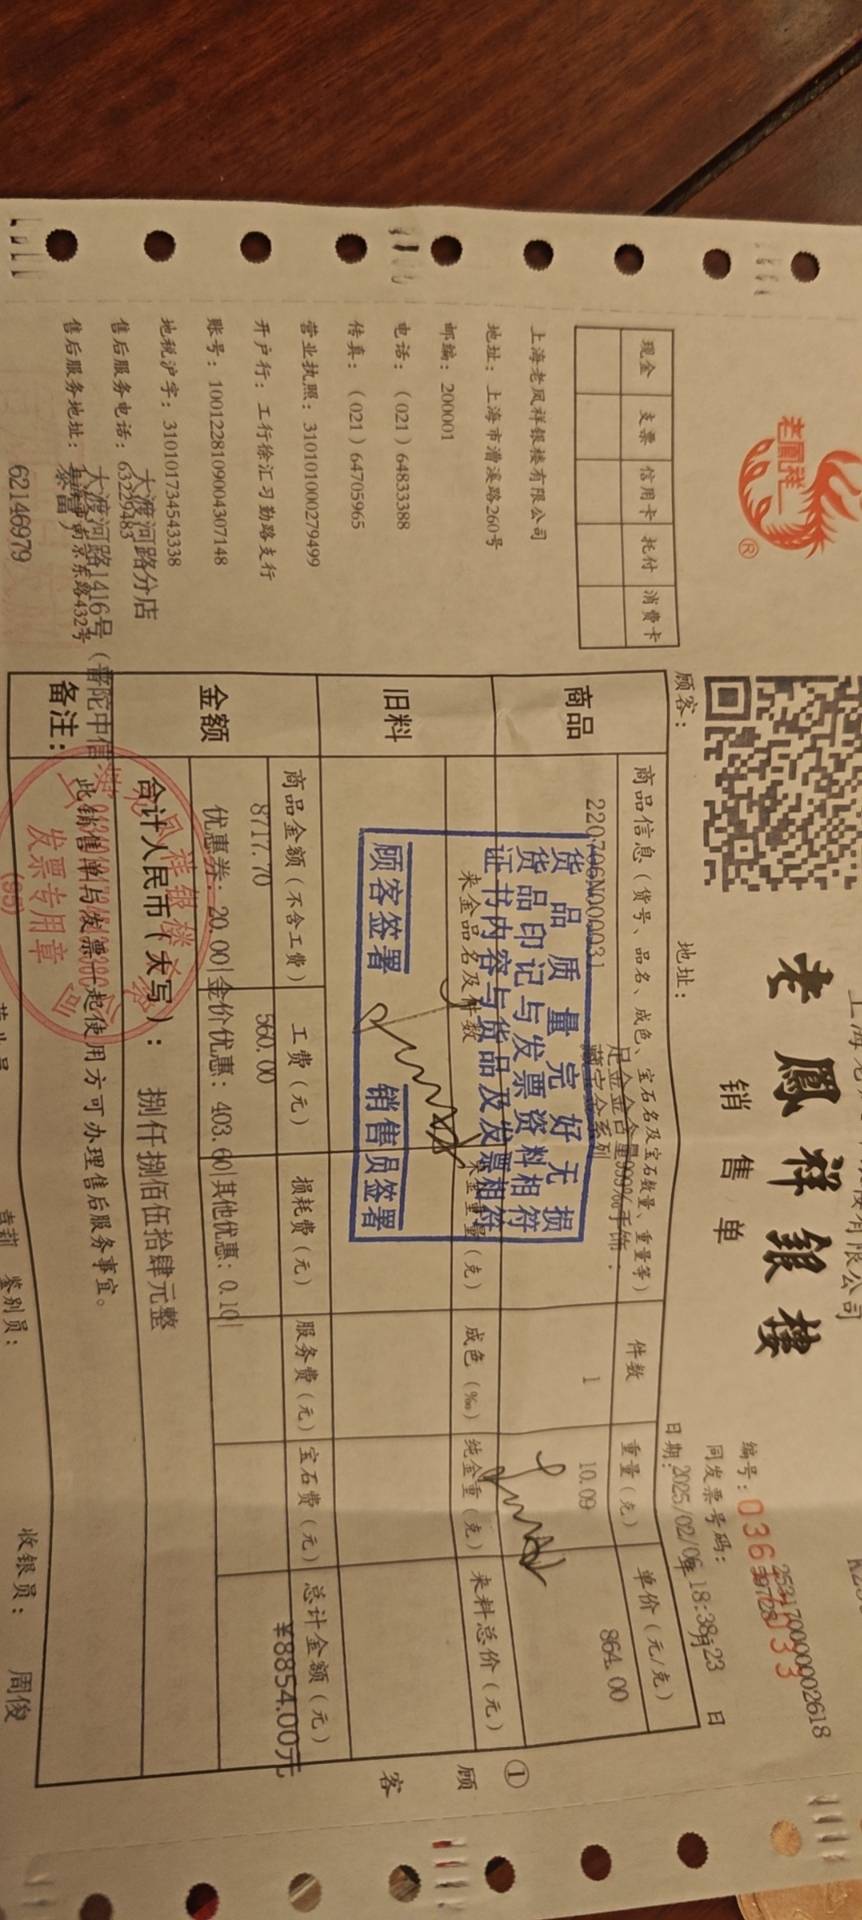 老鳳祥
®
老鳳祥銀樓
销售单
编号：
同发票号码：
25317000002618
日期：2025/02/06 18:38:23
年 月 日
顾客：
地址：
现金 支票 信用卡 托付 消费卡
上海老凤祥银楼有限公司
地址：上海市漕溪路260号
邮编：200001
电话：(021)64833388
传真：(021)64705965
营业执照：310101000279499
开户行：工行徐汇习勤路支行
账号：1001228109004307148
地税沪字：310101734543338
大渡河路分店
售后服务电话：63229483
大渡河路1416号（普陀中信泰富
售后服务地址：上海市南京东路432号
62146979
商品
商品信息（货号、品名、成色、宝石名及宝石数量、重量等） 件数 重量（克） 单价（元/克）
足金金含量999‰手饰.
220706N000031 藏宝金系列 1 10.09 864.00
货品质量完好无损
货品印记与发票资料相符
证书内容与货品及发票相符
顾客签署 销售员签署
旧料
来金品名及件数 来金重量（克） 成色（‰） 纯金重（克） 来料总价（元）
金额
商品金额（不含工费） 工费（元） 损耗费（元） 服务费（元） 宝石费（元） 总计金额（元）
8717.70 560.00 ¥8854.00元
优惠券：20.00|金价优惠：403.60|其他优惠：0.10|
合计人民币（大写）： 捌仟捌佰伍拾肆元整
备注：
此销售单与发票一起使用方可办理售后服务事宜。
发票专用章
(95)
鉴别员：
收银员： 周俊
①
顾
客